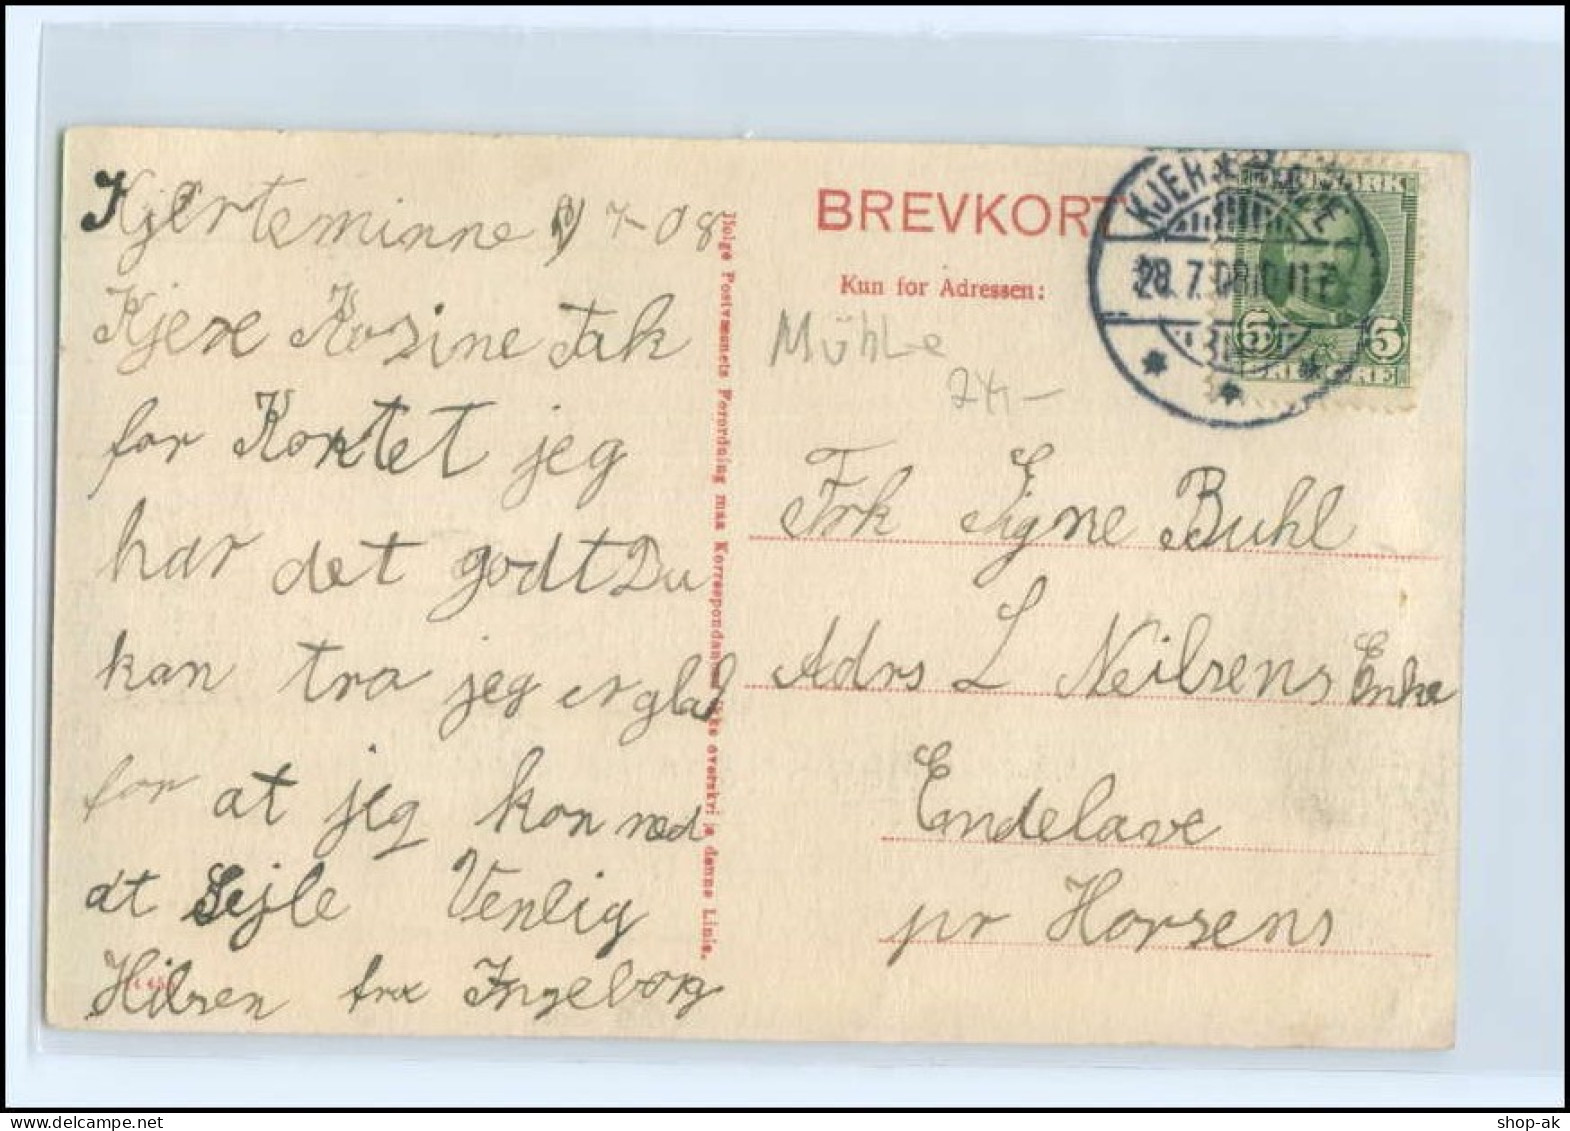 Kjerteminne 7-08
Kjere Kosine Tak
for Kortet jeg
har det godt Du
kan tro jeg er glad
for at jeg kon med
at Sejle Venlig
Hilsen fra Ingeborg
Ifølge Postvæsnets Forordning maa Korrespondancen ikke overskride denne Linie.
BREVKORT
Kun for Adressen:
28.7.08
5 5
Mühle
24,-
Frk Signe Buhl
Adrs L Neilsens Enke
Endelave
pr Horsens
shop-ak